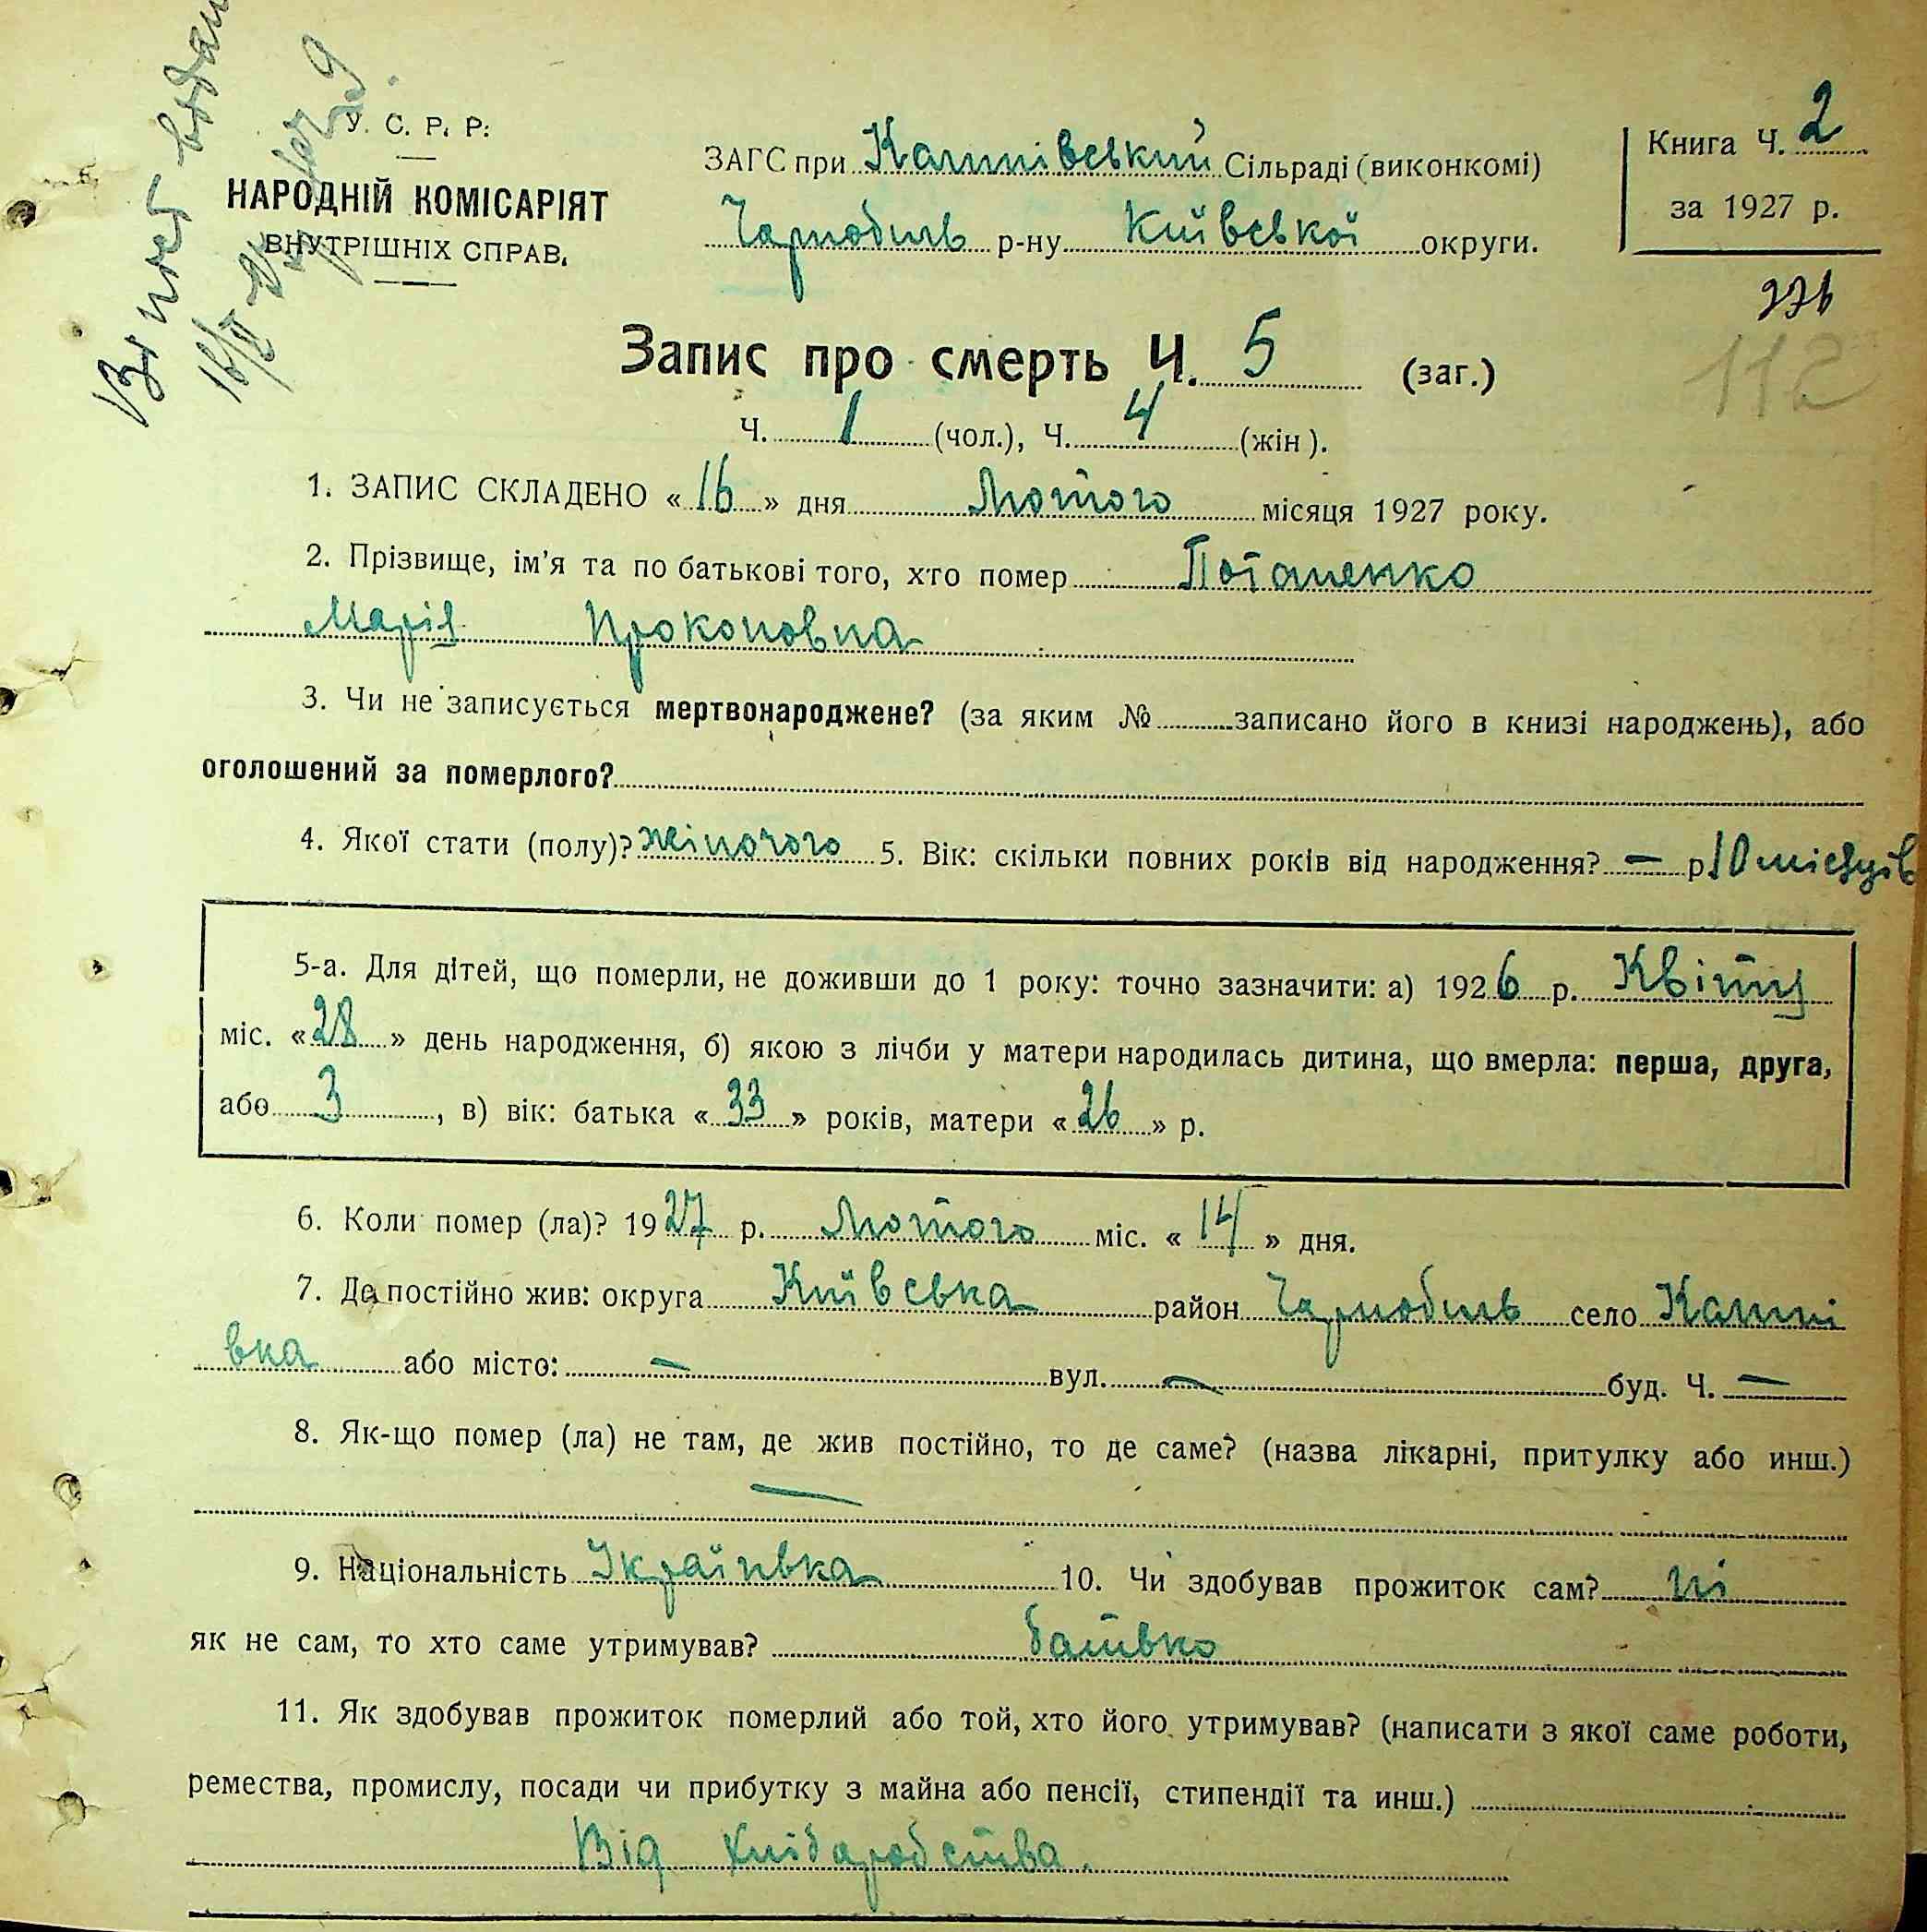 Витяг видан
16/II 27
У. С. Р. Р.
НАРОДНІЙ КОМІСАРІЯТ
ВНУТРІШНІХ СПРАВ.
ЗАГС при Сільраді (виконкомі)
Чарнобиль р-ну Київської округи.
Книга Ч. 2
за 1927 р.
112
Запис про смерть Ч. 5 (заг.)
Ч. 1 (чол.), Ч. 4 (жін).
1. ЗАПИС СКЛАДЕНО « 16 » дня Лютого місяця 1927 року.
2. Прізвище, ім'я та по батькові того, хто помер Потапенко
Марія Прокоповна
3. Чи не записується мертвонароджене? (за яким № записано його в книзі народжень), або
оголошений за померлого?
4. Якої стати (полу)? жіночого 5. Вік: скільки повних років від народження? — р 10 місяців
5-а. Для дітей, що померли, не доживши до 1 року: точно зазначити: а) 1926 р. Квітну
міс. « 28 » день народження, б) якою з лічби у матери народилась дитина, що вмерла: перша, друга,
або 3, в) вік: батька « 33 » років, матери « 26 » р.
6. Коли помер (ла)? 1927 р. Лютого міс. « 14 » дня.
7. Де постійно жив: округа Київська район Чарнобиль село
вка або місто: — вул. — буд. Ч. —
8. Як-що помер (ла) не там, де жив постійно, то де саме? (назва лікарні, притулку або инш.)
—
9. Національність Українка 10. Чи здобував прожиток сам? ні
як не сам, то хто саме утримував? батько
11. Як здобував прожиток померлий або той, хто його утримував? (написати з якої саме роботи,
ремества, промислу, посади чи прибутку з майна або пенсії, стипендії та инш.)
Від хлібаробства.